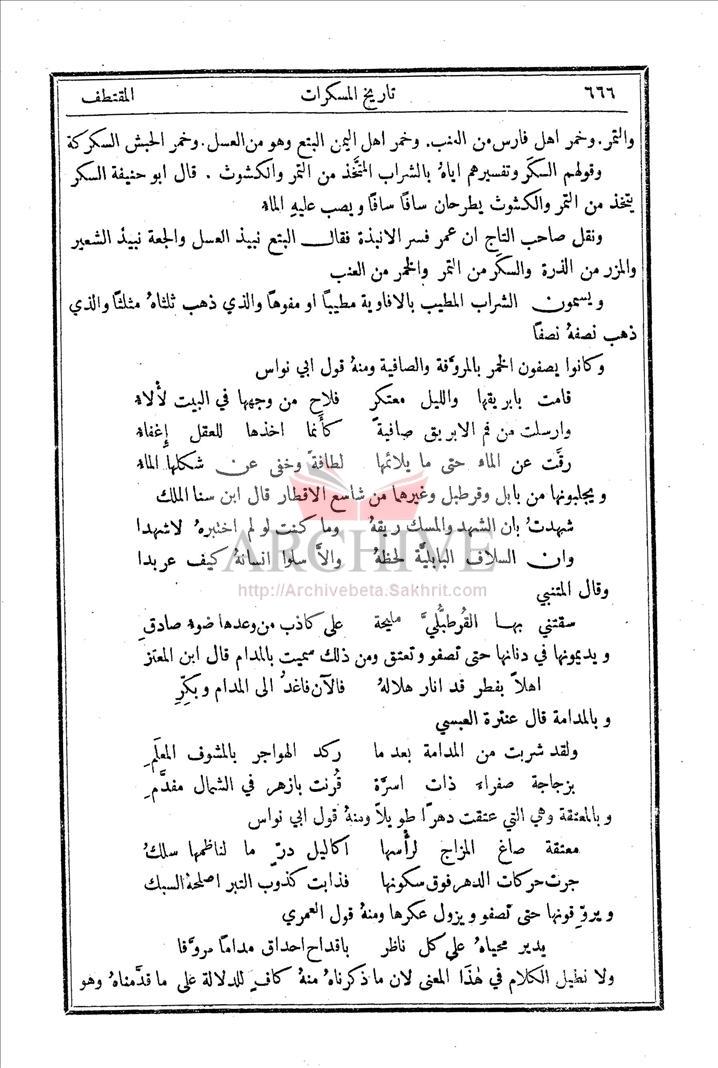 ٦٦٦ تاريخ المسكرات المقتطف
والتمر. وخمر اهل فارس من العنب. وخمر اهل اليمن البتع وهو من العسل. وخمر الحبش السكركة
وقولهم السكَر وتفسيرهم اياهُ بالشراب المتَّخذ من التمر والكشوث . قال ابو حنيفة السكر
يتخذ من التمر والكشوث يطرحان سافًا سافًا ويصب عليهِ الماء
ونقل صاحب التاج ان عمر فسر الانبذة فقال البتع نبيذ العسل والجعة نبيذ الشعير
والمزر من الذرة والسكَر من التمر والخمر من العنب
ويسمون الشراب المطيب بالافاوية مطيبًا او مفوهًا والذي ذهب ثلثاهُ مثلثًا والذي
ذهب نصفهُ نصفًا
وكانوا يصفون الخمر بالمروَّقة والصافية ومنهُ قول ابي نواس
قامت بابريقها والليل معتكر فلاح من وجهها في البيت لألاء
وارسلت من فم الابريق صافيةً كأنما اخذها للعقل إغفاء
رقَّت عن الماء حتى ما يلائمها لطافةً وخفى عن شكلها الماء
ويجلبونها من بابل وقرطبل وغيرها من شاسع الاقطار قال ابن سنا الملك
شهدتُ بان الشهد والمسك ريقهُ وما كنت لو لم اختبرهُ لاشهدا
وان السلاف البابليَّة لحظهُ والاَّ سلوا انسانهُ كيف عربدا
ARCHIVE
http://Archivebeta.Sakhrit.com
وقال المتنبي
سقتني بها القُرطبُّليَّ مليحة على كاذب من وعدها ضوء صادقِ
ويديمونها في دنانها حتى تصفو وتعتق ومن ذلك سميت بالمدام قال ابن المعتز
اهلاً بفطر قد انار هلالهُ فالآن فاغدُ الى المدام وبكِّرِ
وبالمدامة قال عنترة العبسي
ولقد شربت من المدامة بعد ما ركد الهواجر بالمشوف المعلَمِ
بزجاجة صفراء ذات اسرَّة قُرنت بازهر في الشمال مفدَّمِ
وبالمعتقة وهي التي عتقت دهرًا طويلاً ومنهُ قول ابي نواس
معتقة صاغ المزاج لرأسها اكاليل درّ ما لناظمها سلكُ
جرت حركات الدهر فوق سكونها فذابت كذوب التبر اصلحهُ السبك
ويروّقونها حتى تصفو ويزول عكرها ومنهُ قول العمري
يدير محياهُ على كل ناظر باقداح احداق مدامًا مروَّقا
ولا نطيل الكلام في هٰذا المعنى لان ما ذكرناهُ منهُ كافٍ للدلالة على ما قدَّمناهُ وهو